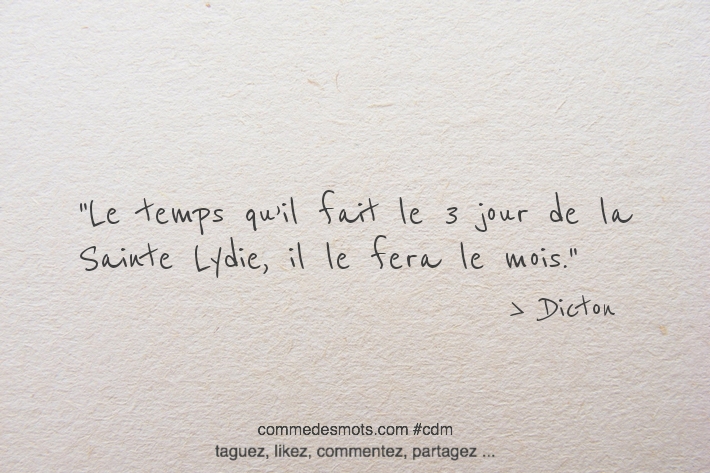 "Le temps qu'il fait le 3 jour de la
Sainte Lydie, il le fera le mois."
> Dicton
commedesmots.com #cdm
taguez, likez, commentez, partagez ...